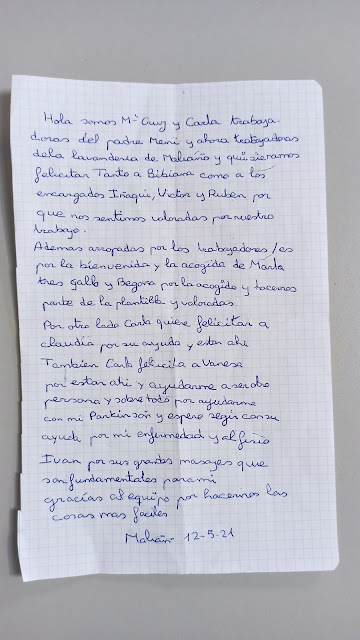 Hola somos Mª Cruz y Carla trabaja-
doras del padre Meni y ahora trabajadoras
dela lavanderia de Maliaño y quisieramos
felicitar Tanto a Bibiana como a los
encargados Iñaqui, Victor y Ruben por
que nos sentimos valoradas por nuestro
trabajo.
Ademas arropadas por los trabajadores/es
por la bienvenida y la acogida de Marta
tres gallo y Begoña por la acogida y
parte de la plantilla y valoradas.
Por otro lado Carla quiere felicitar a
claudia por su ayuda y estar ahi
Tambien Carla felicita a Vanesa
por estar ahi y ayudarme a ser otra
persona y sobre todo por ayudarme
con mi Parkinson y espero segir con su
ayuda por mi enfermedad y al fisio
Ivan por sus grandes masajes que
son fundamentales para mi
gracias al equipo por hacernos las
cosas mas faciles
12-5-21